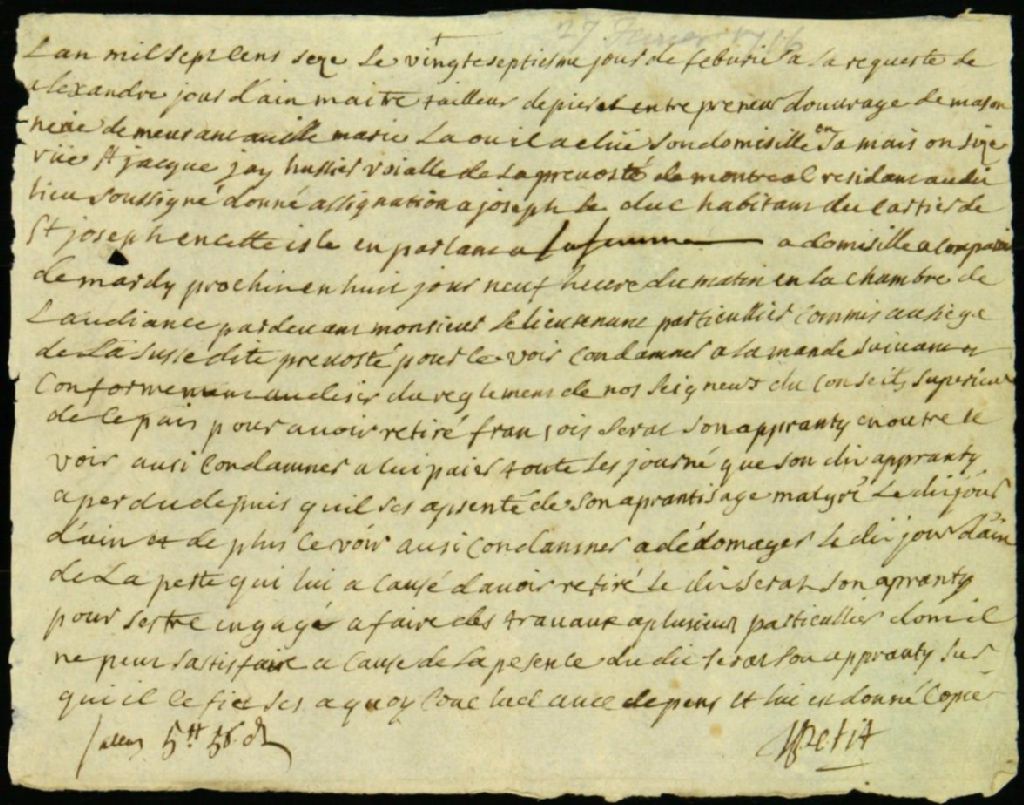 27 Fevrier 1716
Lan mil sept cens seze le vingt septiesme jour de feburié a la requeste de
alexandre jourdain maitre tailleur de pier et entrepreneur douvrage de mason
nerie demeurant au ville marie la ou il a elüe son domisille en sa maison size
rüe St jacque jay hussier roialle de la prevosté de montreal residant audit
lieu soussigné donné assignation a joseph le duc habitant du cartier de
St joseph en cette isle en parlant a sa femme a domisille a comparoir
de mardy prochin en huit jour neuf heure du matin en la chambre de
Laudiance pardevant monsieur le lieutenant particullier commis au siege
de la susse dite prevosté pour ce voir condamner a lamande suivant et
conformement au desir du reglement de nos seigneur du conseil superieur
de ce pais pour avoir retiré fransois serat son appranty en outre se
voir ausi condamner a lui paier toute les journé que son dit appranty
a perdu depuis quil ses apsenté de son aprantisage malgré le dit jour
d'ain et de plus ce voir ausi condamner a dédomager le dit jourdain
de la perte qui lui a causé davoir retiré le dit serat son apranty
pour sestre engagé a faire des travaux a plusieur particullier dont il
ne peut satisfaire a cause de la pesence du dit serat son appranty sur
qui il ce fiet ses a quoy conclud avec depens et lui en donné copie
5tt 5s
Petit